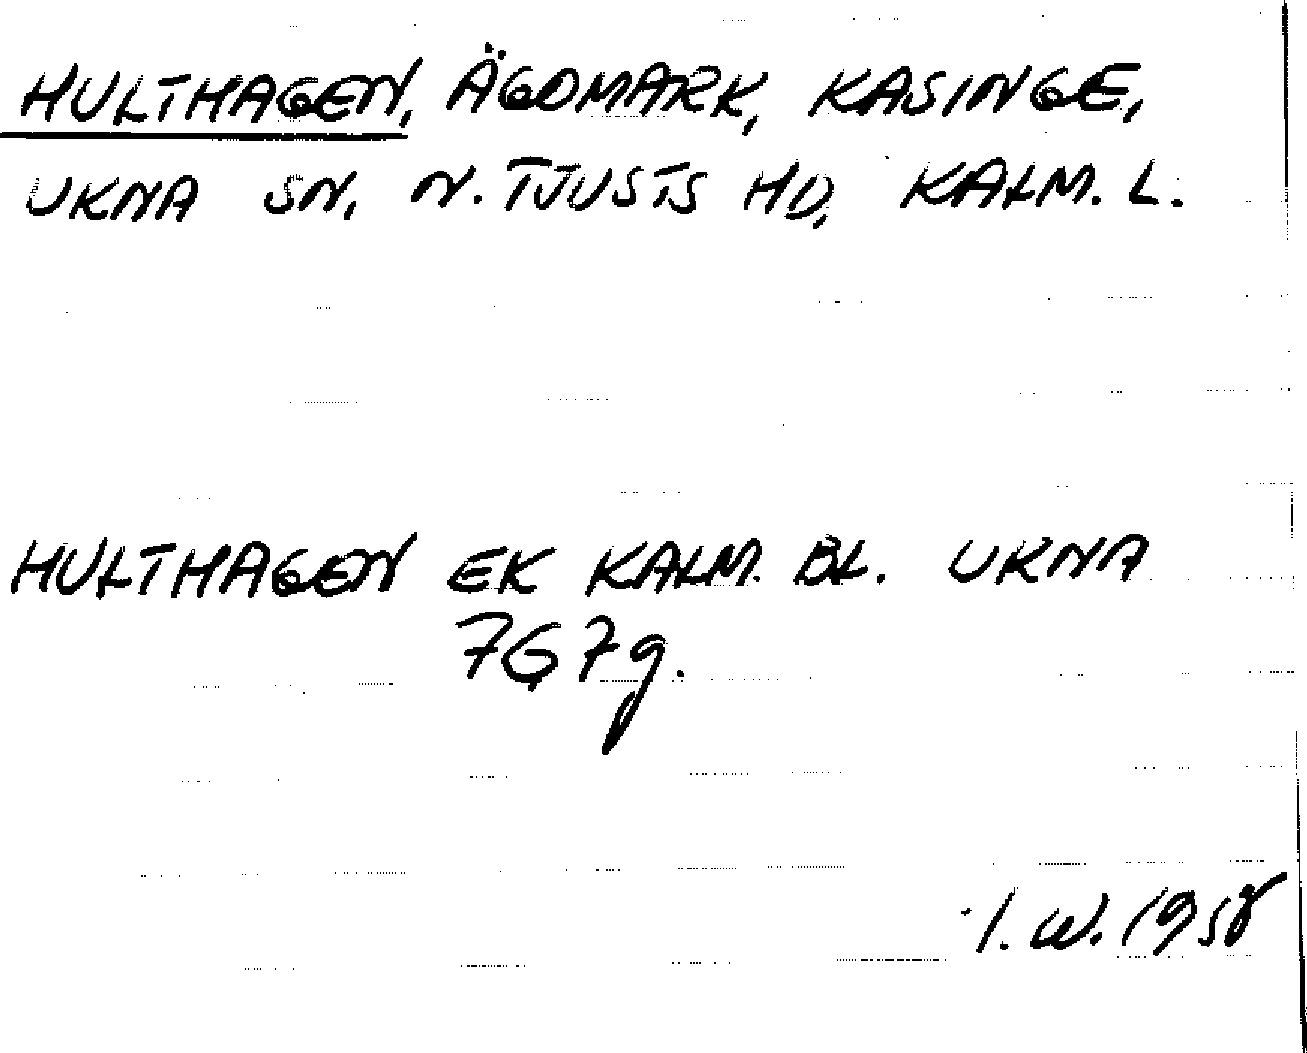 HULTHAGEN, ÄGOMARK, KASINGE,
UKNA SN, N. TJUSTS HD, KALM. L.
HULTHAGEN EK KALM. BL. UKNA
7G7g.
I. W. 1958